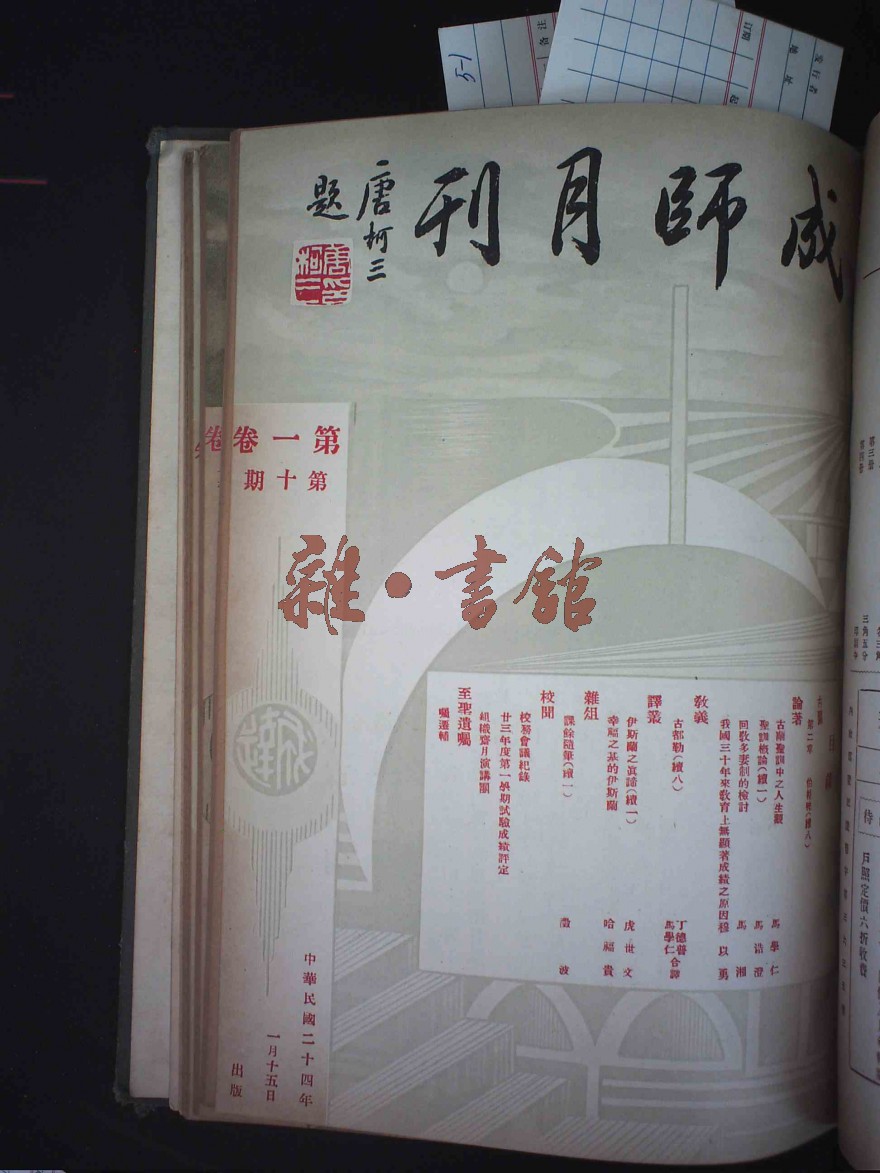 成師月刊
唐柯三
題
唐柯三印
第一卷
第十期
雜·書館
論著
古蘭聖訓中之人生觀 馬學仁
聖訓概論(續一) 馬浩澄
回教多妻制的檢討 馬湘
我國三十年來教育上無顯著成績之原因 穆以勇
教義
古都勒(續八) 丁德普 馬學仁 合譯
譯叢
伊斯蘭之真諦(續一) 虎世文
幸福之基的伊斯蘭 哈福貴
雜俎
課餘隨筆(續一) 澄波
校聞
校務會議紀錄
廿三年度第一學期試驗成績評定
組織齋月演講團
至聖遺囑
中華民國二十四年
一月十五日
出版
5-1
第三册
第四册
三角五分
待
戶照定價六折收費